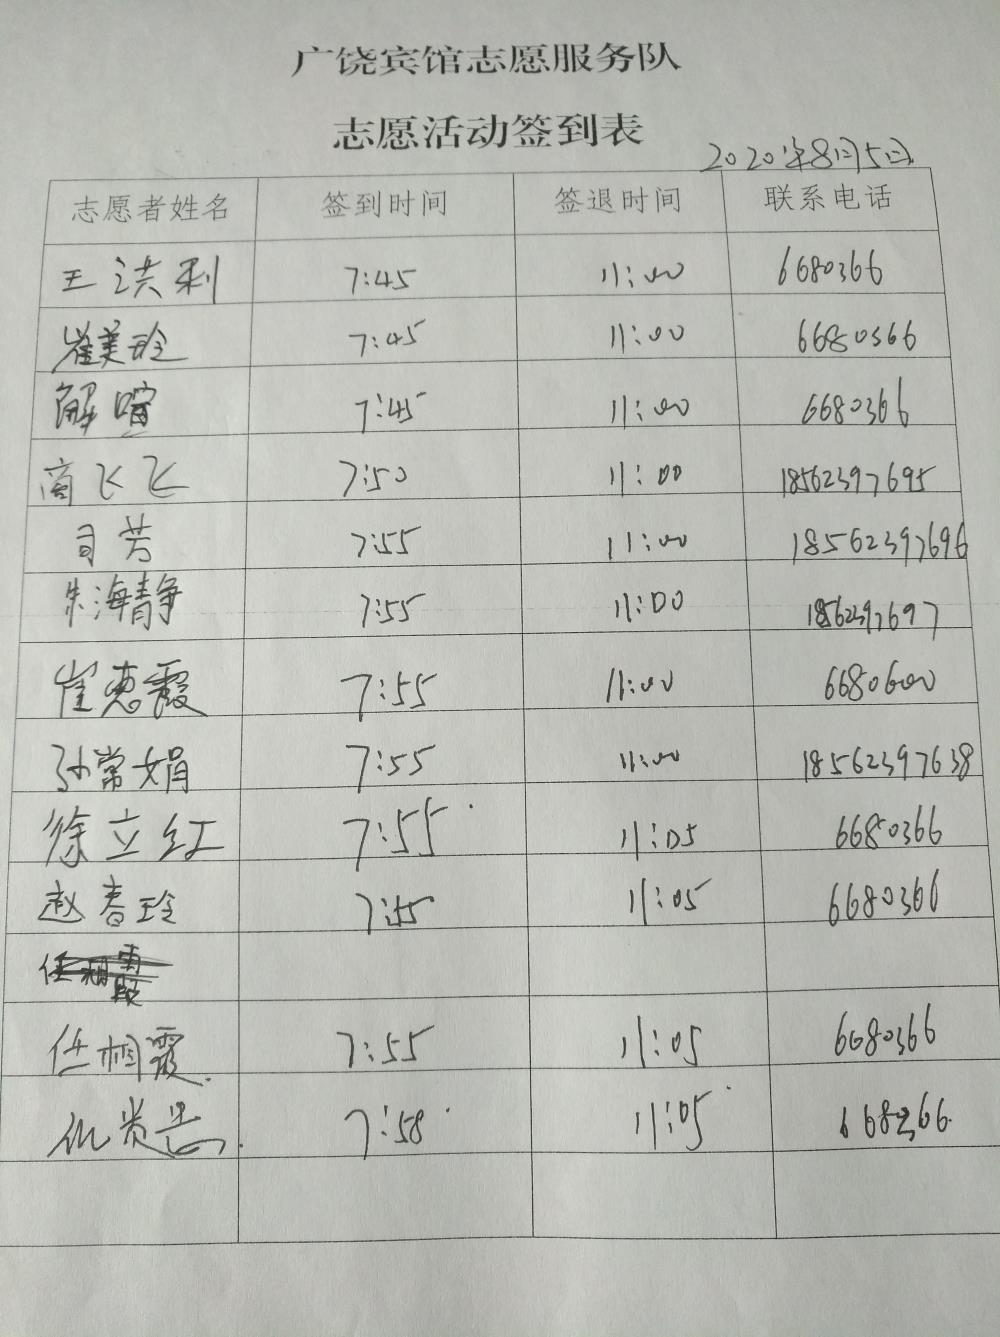 广饶宾馆志愿服务队
志愿活动签到表
2020年8月5日
志愿者姓名 签到时间 签退时间 联系电话
王洪利 7:45 11:00 6680366
崔美玲 7:45 11:00 6680366
解喧 7:45 11:00 6680366
商飞飞 7:50 11:00 18562397695
司芳 7:55 11:00 18562397696
朱海静 7:55 11:00 18562397697
崔惠霞 7:55 11:00 6680600
孙常娟 7:55 11:00 18562397638
徐立红 7:55 11:05 6680366
赵春玲 7:55 11:05 6680366
任相霞 7:55 11:05 6680366
7:58 11:05